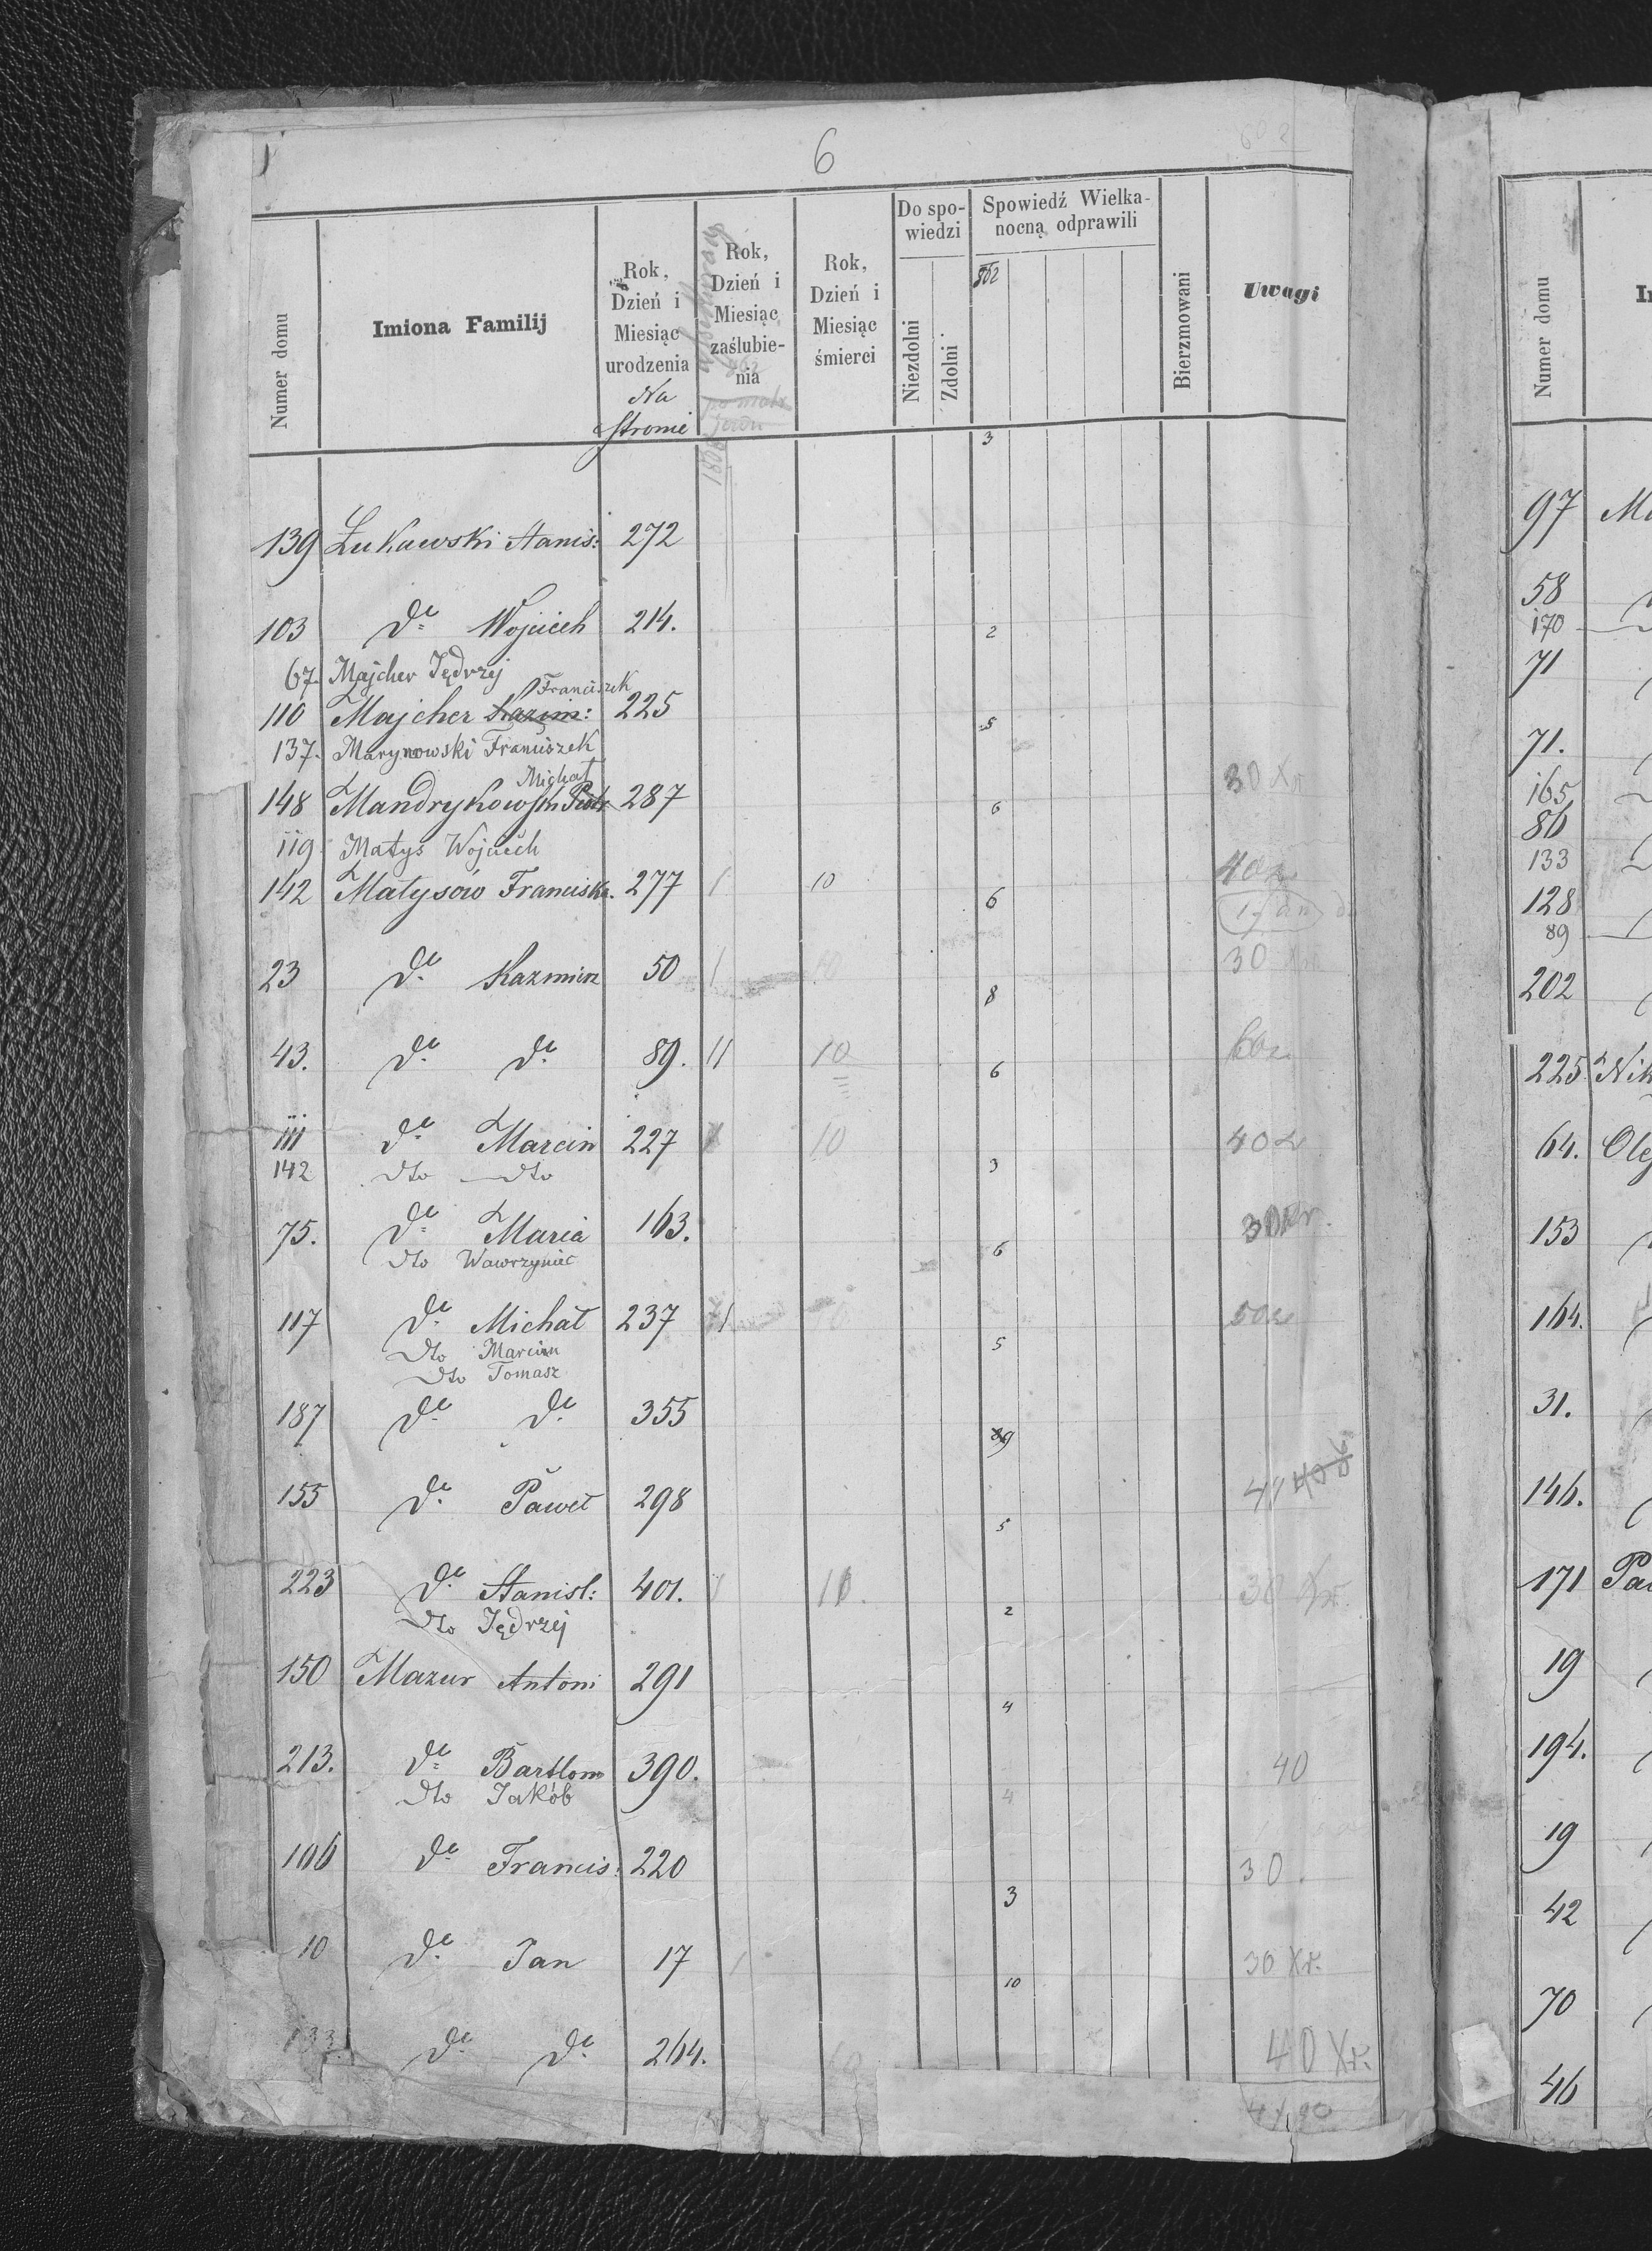 6
Numer domu
Imiona Familij
Rok, Dzień i Miesiąc urodzenia
Na stronie
Rok, Dzień i Miesiąc zaślubienia
Rok, Dzień i Miesiąc śmierci
Do spowiedzi
Niezdolni
Zdolni
Spowiedź Wielkanocną odprawili
862
Bierzmowani
Uwagi
3
139 Łukawski Stanis: 272
103 do Wojciech 214. 2
67. Majcher Jędrzej
Franciszek
110 Majcher Kazim: 225 5
137. Marynowski Franciszek
Michał
148 Mandrykowski Piotr 287 6 30 Xr
119. Matys Wojciech
142 Matysów Franciska. 277 1 10 6 40
23 do Kazmirz 50 1 10 8 30
43. do do 89. 11 10 6 60
111 do Marcin 227 10 3 40
142 dto dto
75. do Maria 163. 6 30 Xr.
dto Wawrzyniec
117 do Michał 237 1 5 50
dto Marcin
dto Tomasz
187 do do 355 9
155 do Paweł 298 5
223 do Stanisł: 401. 1 10. 2 30 Xr.
dto Jędrzej
150 Mazur Antoni 291 4
213. do Bartłom 390. 4 40
dto Jakób
106 do Francis: 220 3 30.
10 do Jan 17 1 10 30 Xr.
133. do do 264. 40 Xr.
Numer domu
97
58
170
71
71.
165
86
133
128
89
202
225
64.
153
164.
31.
146.
171
19
194.
19
42
70
46